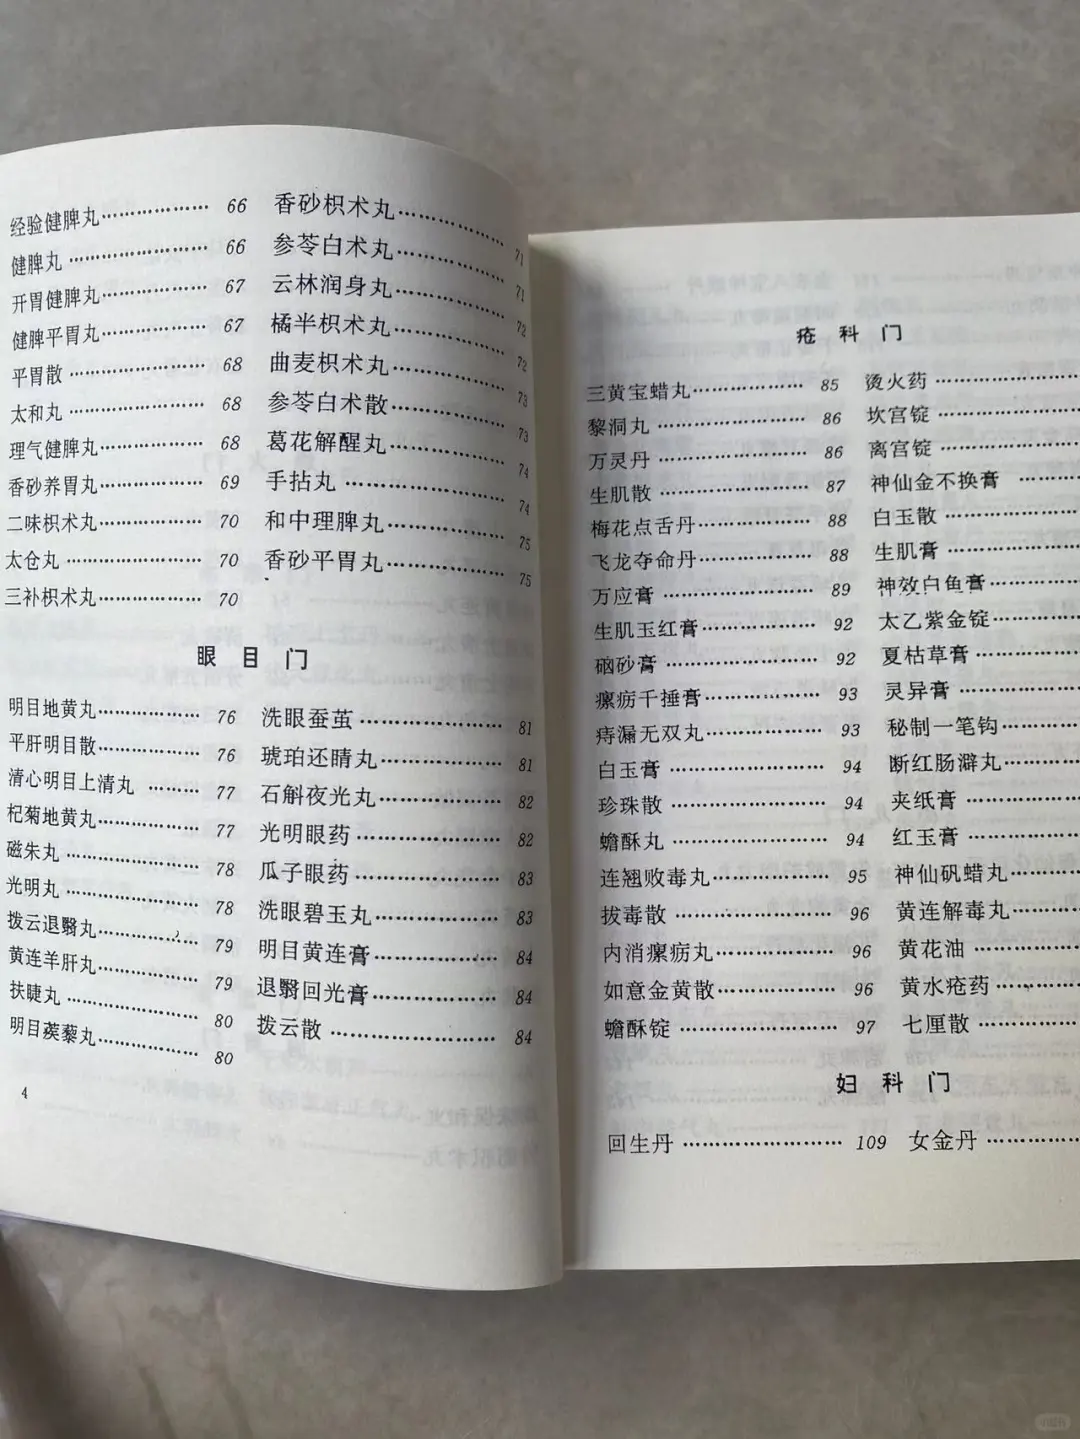 经验健脾丸………………66
健脾丸………………66
开胃健脾丸………………67
健脾平胃丸………………67
平胃散………………68
太和丸………………68
理气健脾丸………………68
香砂养胃丸………………69
二味枳术丸………………70
太仓丸………………70
三补枳术丸………………70
香砂枳术丸………………71
参苓白术丸………………71
云林润身丸………………72
橘半枳术丸………………72
曲麦枳术丸………………73
参苓白术散………………73
葛花解醒丸………………74
手拈丸………………74
和中理脾丸………………75
香砂平胃丸………………75
眼目门
明目地黄丸………………76
平肝明目散………………76
清心明目上清丸………77
杞菊地黄丸………………77
磁朱丸………………78
光明丸………………78
拨云退翳丸………………79
黄连羊肝丸………………79
扶睫丸………………80
明目蒺藜丸………………80
洗眼蚕茧………………81
琥珀还睛丸………………81
石斛夜光丸………………82
光明眼药………………82
瓜子眼药………………83
洗眼碧玉丸………………83
明目黄连膏………………84
退翳回光膏………………84
拨云散………………84
4
疮科门
三黄宝蜡丸………………85
黎洞丸………………86
万灵丹………………86
生肌散………………87
梅花点舌丹………………88
飞龙夺命丹………………88
万应膏………………89
生肌玉红膏………………92
硇砂膏………………92
瘰疬千捶膏………………93
痔漏无双丸………………93
白玉膏………………94
珍珠散………………94
蟾酥丸………………94
连翘败毒丸………………95
拔毒散………………96
内消瘰疬丸………………96
如意金黄散………………96
蟾酥锭………………97
烫火药………………
坎宫锭………………
离宫锭………………
神仙金不换膏………
白玉散………………
生肌膏………………
神效白鱼膏…………
太乙紫金锭…………
夏枯草膏……………
灵异膏………………
秘制一笔钩…………
断红肠澼丸…………
夹纸膏………………
红玉膏………………
神仙矾蜡丸…………
黄连解毒丸…………
黄花油………………
黄水疮药……………
七厘散………………
妇科门
回生丹………………109
女金丹………………